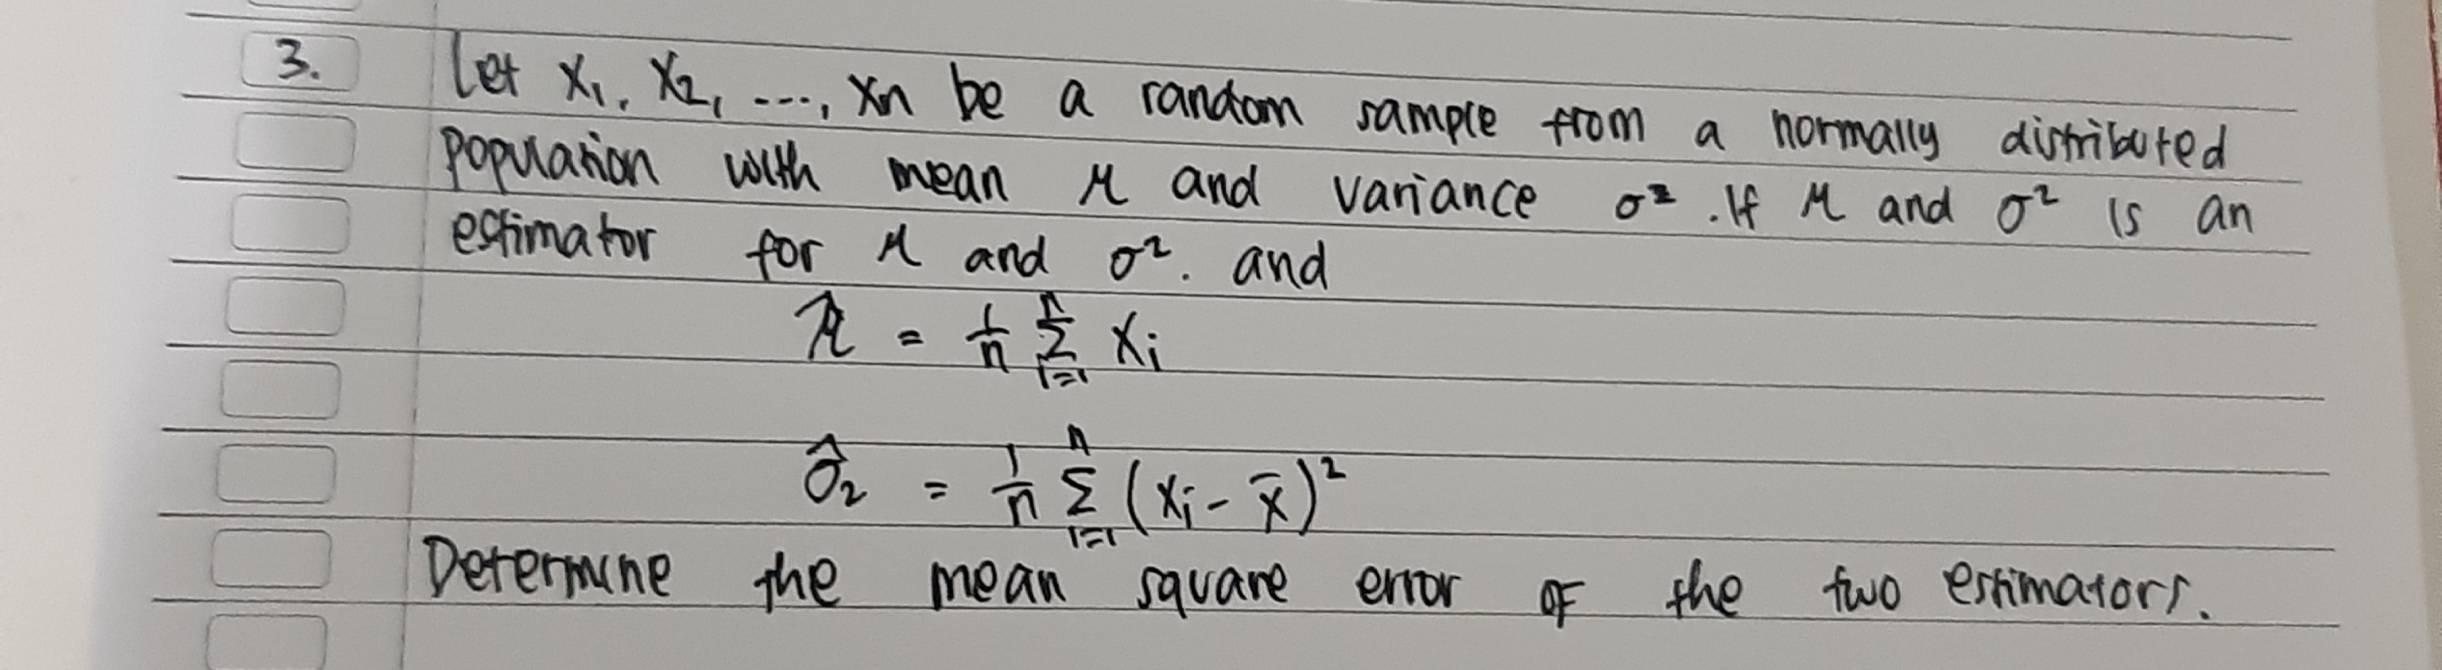 3. Let x₁, x₂, ..., xn be a random sample from a normally distributed
population with mean μ and variance σ². If μ and σ² is an
estimator for μ and σ². and
μ̂ = 1/n Σ_{i=1}^{n} xi
σ̂₂ = 1/n Σ_{i=1}^{n} (xi - x̄)²
Determine the mean square error of the two estimators.